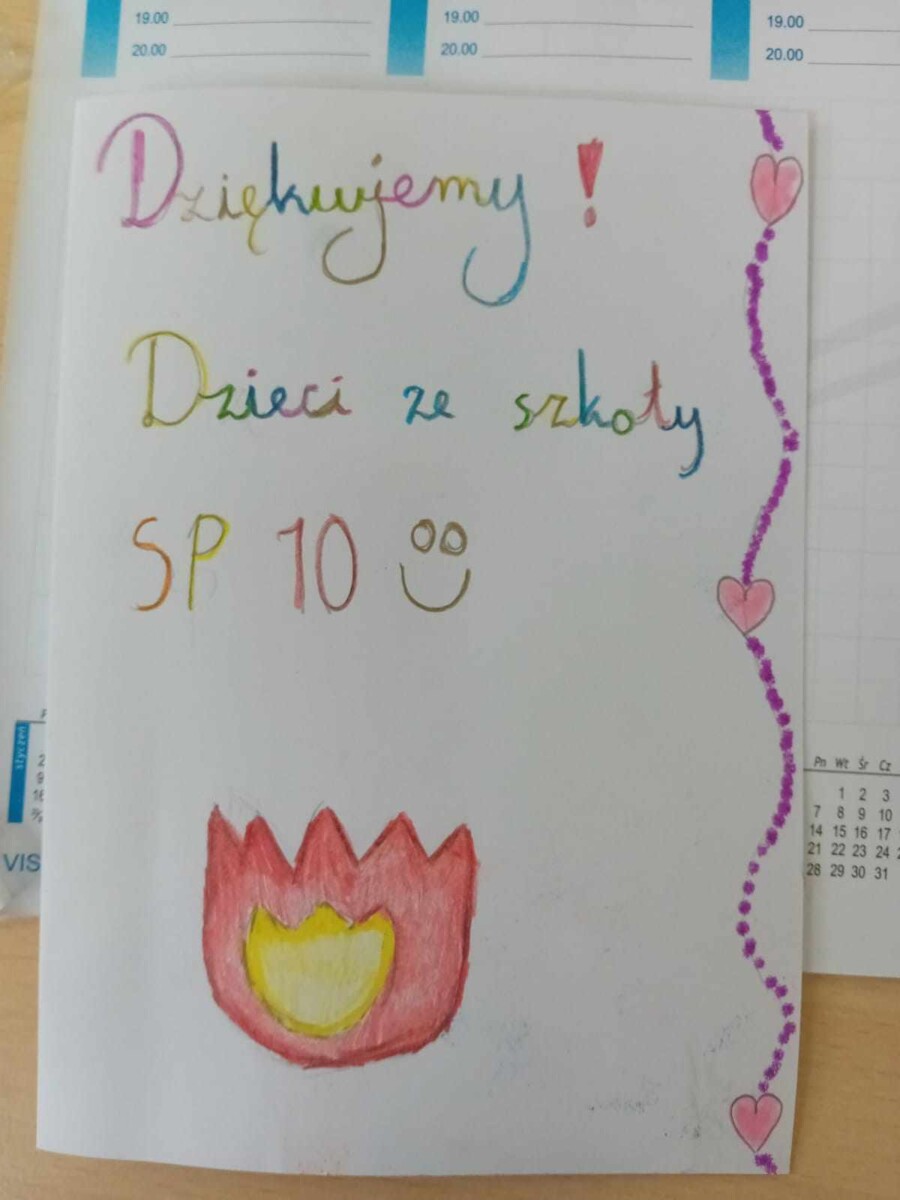 19.00 19.00 19.00
20.00 20.00 20.00
Dziękujemy!
Dzieci ze szkoły
SP 10
styczeń
VIS
Pn Wt Śr Cz
1 2 3
7 8 9 10
14 15 16 17
21 22 23 24
28 29 30 31